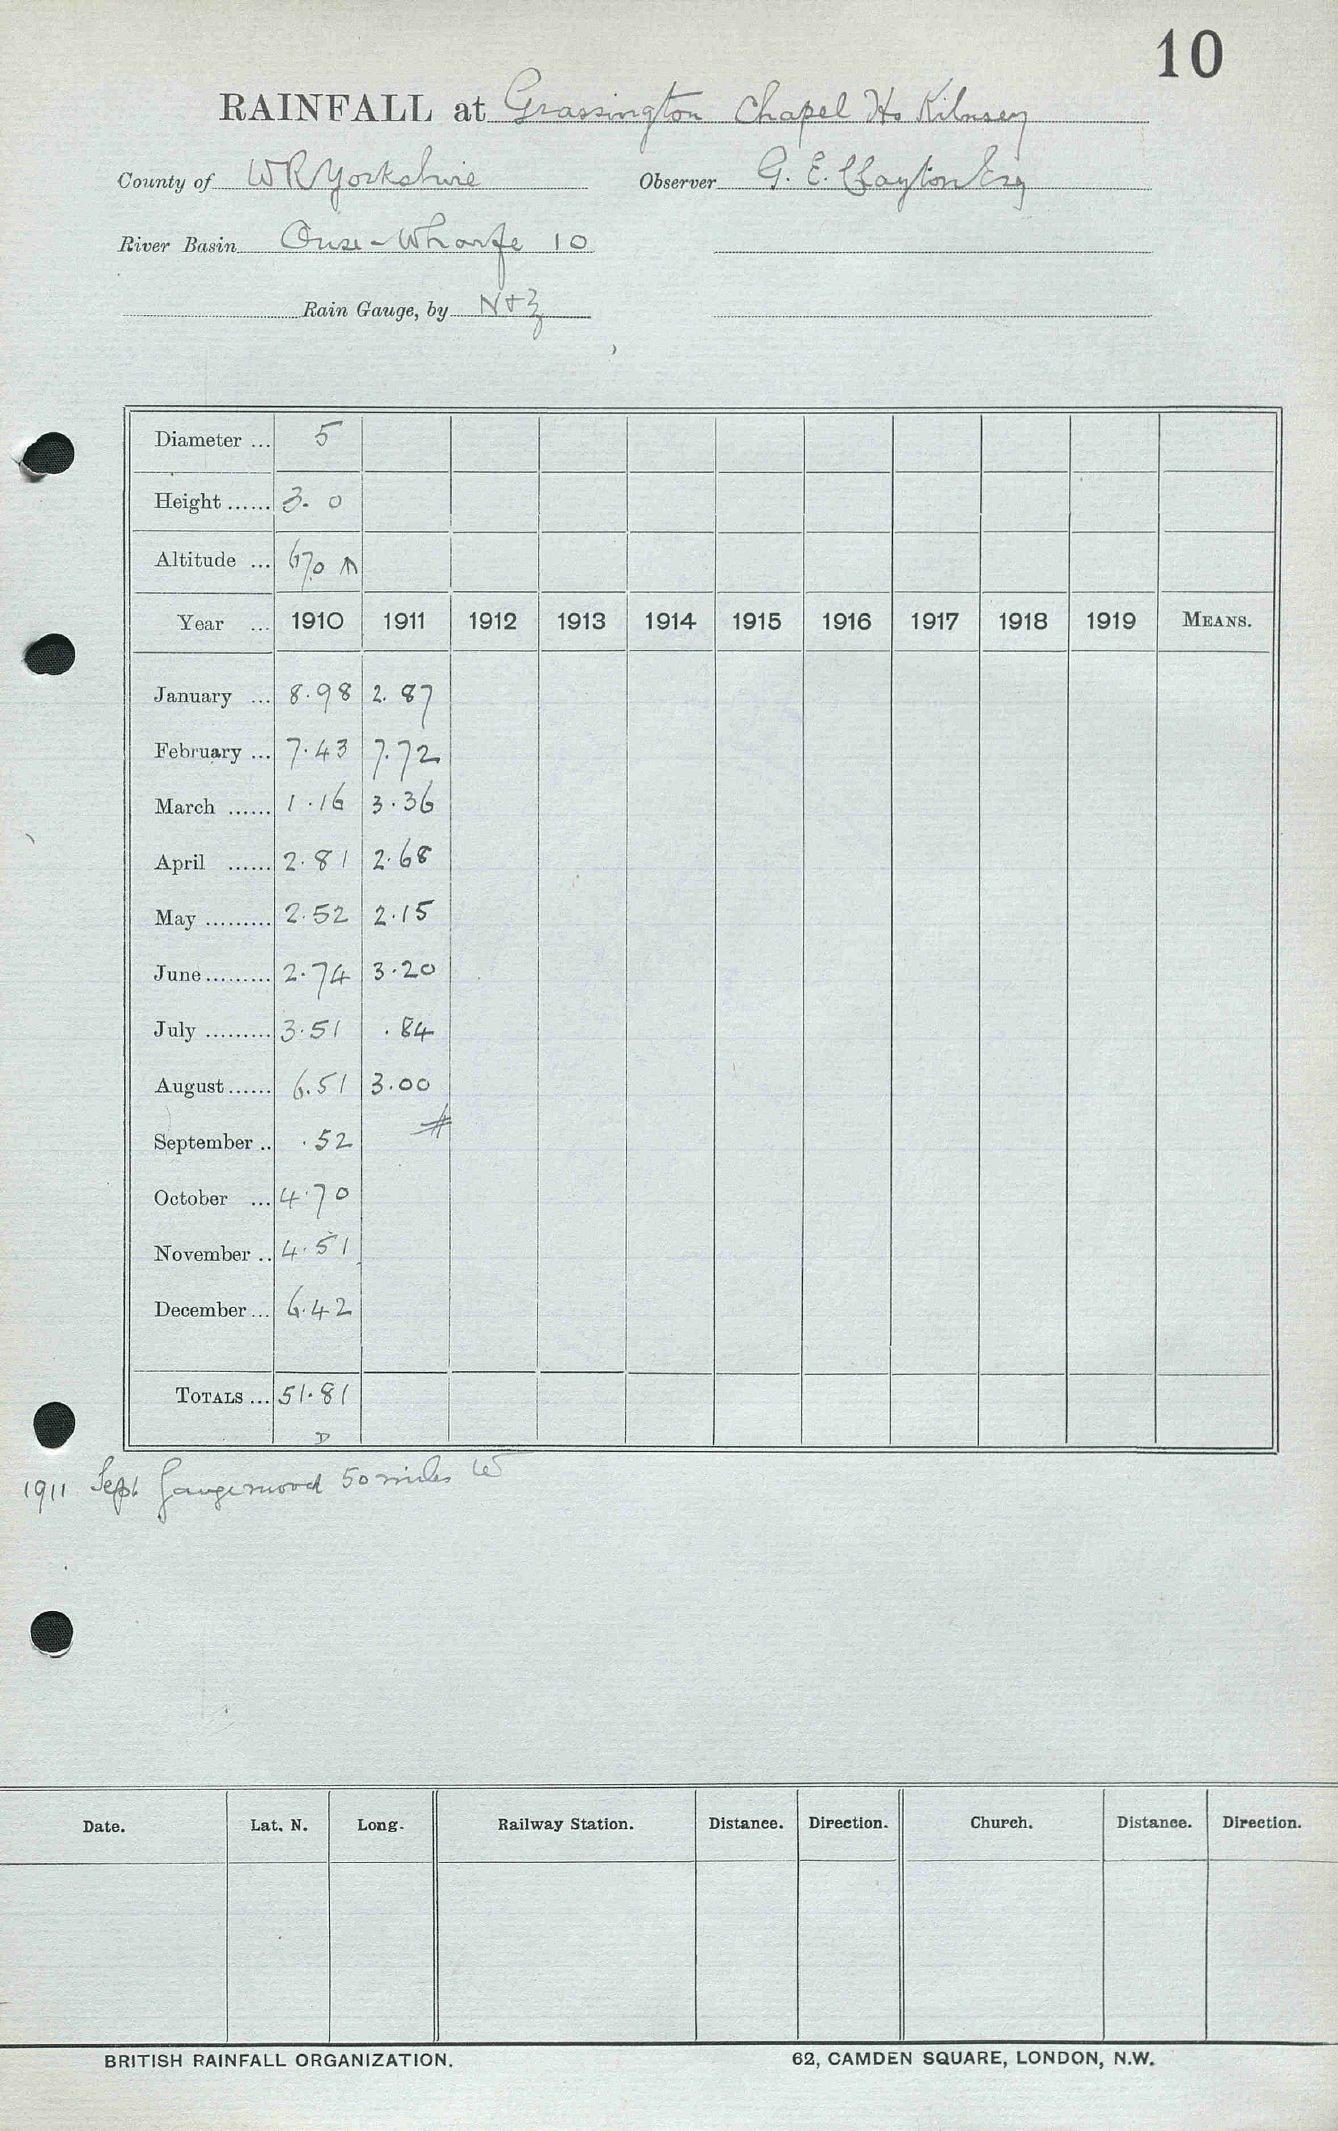 10
RAINFALL at Grassington Chapel Ho Kilnsey
County of WRYorkshire Observer G. E. Clayton Esq
River Basin Ouse - Wharfe 10
Rain Gauge, by N+Z
Diameter ... 5
Height ...... 3. 0
Altitude ... 670
Year ... 1910 1911 1912 1913 1914 1915 1916 1917 1918 1919 MEANS.
January ... 8.98 2.87
February ... 7.43 7.72
March ...... 1.16 3.36
April ...... 2.81 2.68
May ......... 2.52 2.15
June ......... 2.74 3.20
July ......... 3.51 .84
August ...... 6.51 3.00
September .. .52 #
October ... 4.70
November .. 4.51
December ... 6.42
TOTALS ... 51.81
D
1911 Sept. Gauge moved 50 miles W
Date. Lat. N. Long. Railway Station. Distance. Direction. Church. Distance. Direction.
BRITISH RAINFALL ORGANIZATION. 62, CAMDEN SQUARE, LONDON, N.W.